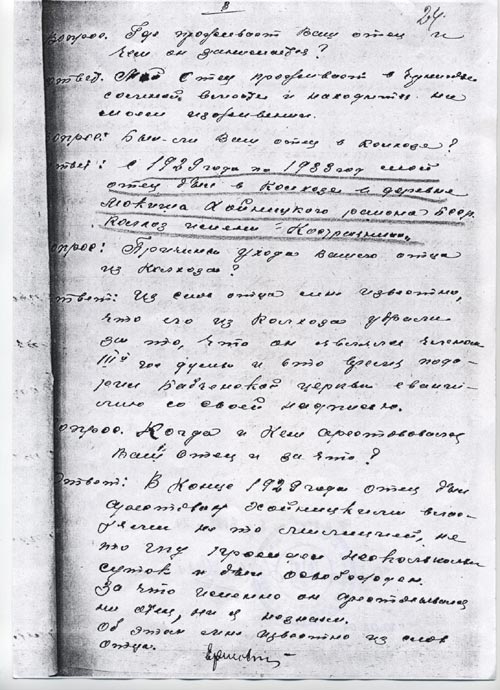 8
24
Вопрос. Где проживает Ваш отец и
чем он занимается?
Ответ. Мой отец проживает в
местности и находится на
моем иждивении.
Вопрос: Был-ли Ваш отец в колхозе?
Ответ: С 1929 года по 1933 год мой
отец был в колхозе в деревне
Мокиша Хойникского района БССР.
колхоз имени
Вопрос: Причины ухода Вашего отца
из колхоза?
Ответ: Из слов отца мне известно,
что его из колхоза убрали
за то, что он являлся членом
IIIй гос думы и в то время пода-
рил Бабчинской церкви еванге-
лию со своей надписью.
Вопрос. Когда и кем арестовывался
Ваш отец и за что?
Ответ: В конце 1929 года отец был
арестован Хойникскими влас-
тями не то милицией, не
то ГПУ просидел несколько
суток и был освобожден.
За что именно он арестовывался
ни отец, ни я не знаем.
Об этом мне известно из слов
отца.